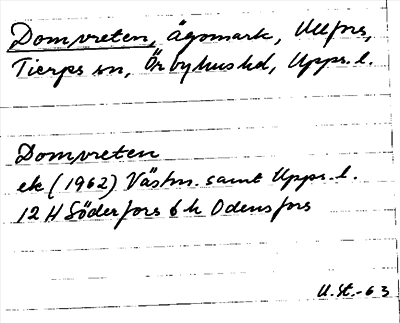 Domvreten, Ägomark, Ullfors,
Tierps sn, Örbyhus hd, Upps. l.
Domvreten
ek (1962) Västm. samt Upps. l.
12 H Söderfors 6 h Odensfors
U.St.-63